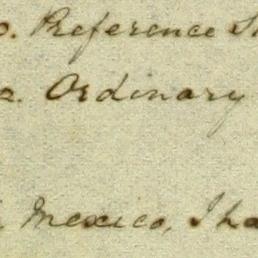 Reference
Ordinary
Mexico, I ha